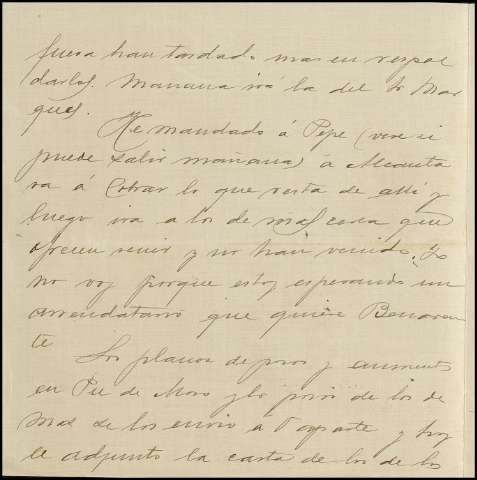 fuera han tardado mas en respal
darlos. Mañana irá la del Sr Mar
qués.
He mandado á Pepe (vere si
puede salir mañana) á
va á Cobrar lo que resta de allí y
luego ira a los de mas cerca que
ofrecen venir y no han venido. Yo
no voy porque estoy esperando un
arrendatario que quiere Benaven
te
Los planos de pozos y aumento
en Pie de Moro y los pozos de los de
mas se los envio a V aparte y hoy
le adjunto la carta de los de los